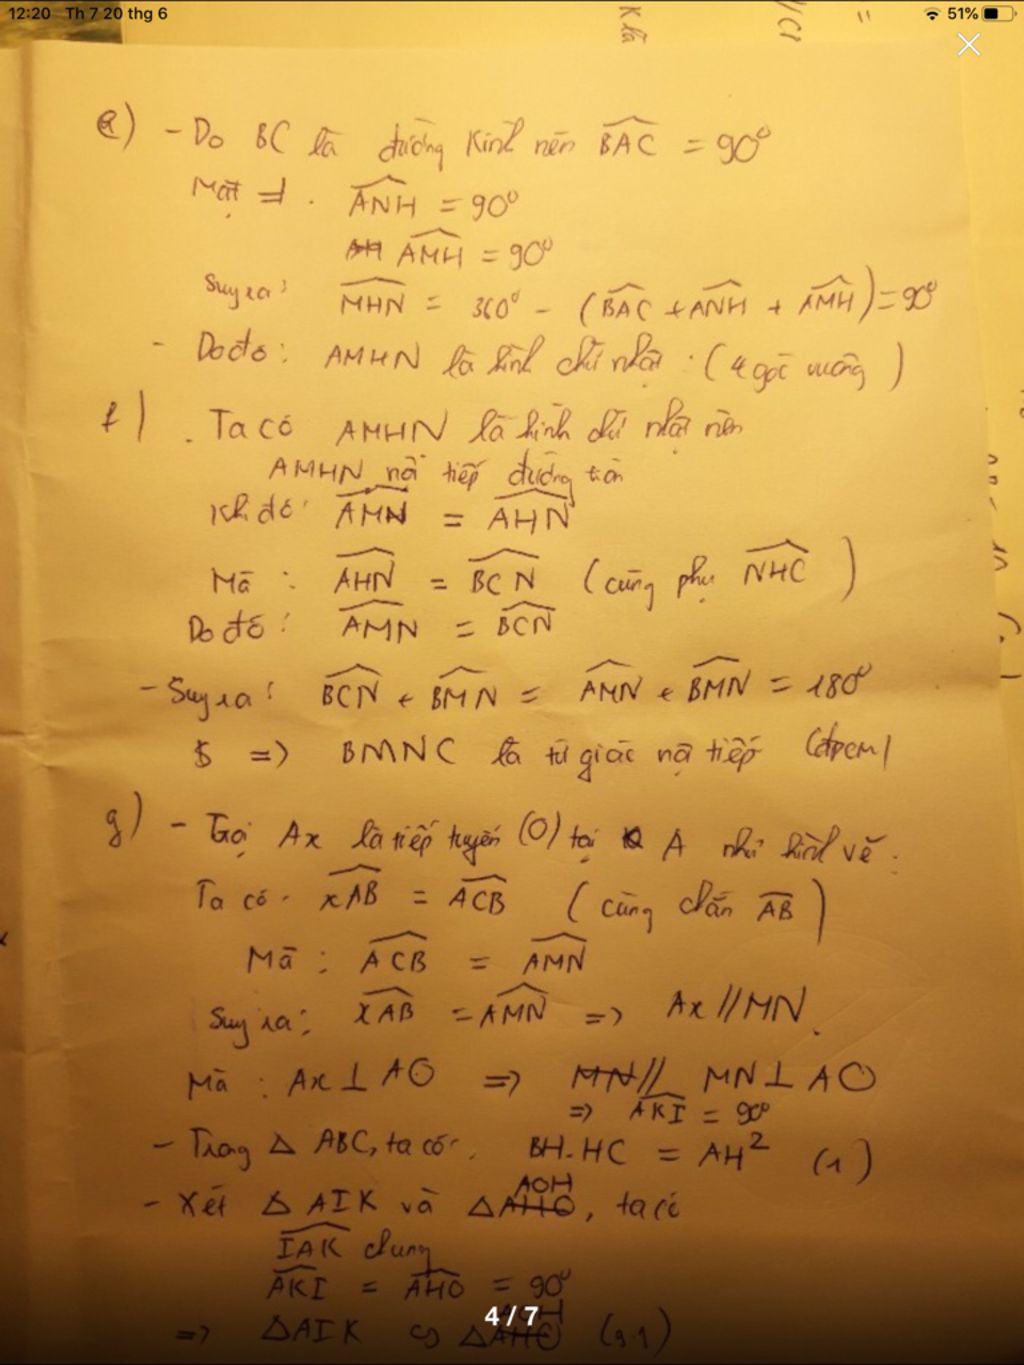 12:20 Th 7 20 thg 6
51%
K là
e) - Do BC là đường kính nên BAC = 90°
Mặt ≠ . ANH = 90°
AH AMH = 90°
Suy ra: MHN = 360° - (BAC + ANH + AMH) = 90°
- Do đó: AMHN là hình chữ nhật : (4 góc vuông)
f) . Ta có AMHN là hình chữ nhật nên
AMHN nội tiếp đường tròn
Khi đó: AMN = AHN
Mà : AHN = BCN (cùng phụ NHC)
Do đó: AMN = BCN
- Suy ra: BCN + BMN = AMN + BMN = 180°
=> BMNC là tứ giác nội tiếp (đpcm)
g) - Gọi Ax là tiếp tuyến (O) tại A như hình vẽ.
Ta có . xAB = ACB (cùng chắn AB)
Mà : ACB = AMN
Suy ra: xAB = AMN => Ax // MN.
Mà : Ax ⊥ AO => MN // MN ⊥ AO
=> AKI = 90°
- Trong Δ ABC, ta có: BH.HC = AH² (1)
AOH
- Xét Δ AIK và Δ AHO, ta có
IAK chung
AKI = AHO = 90°
4 / 7
AOH
=> ΔAIK ∽ ΔAHO (g.g)